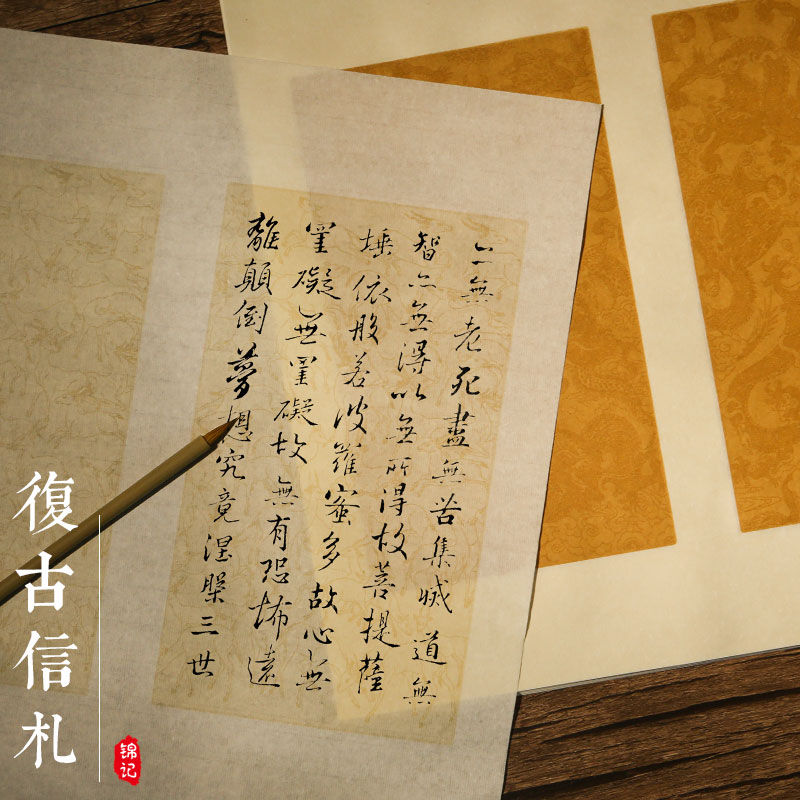 亦無老死盡無苦集滅道無
智亦無得以無所得故菩提薩
埵依般若波羅蜜多故心無
罣礙無罣礙故無有恐怖遠
離顛倒夢想究竟涅槃三世
復古信札
锦记